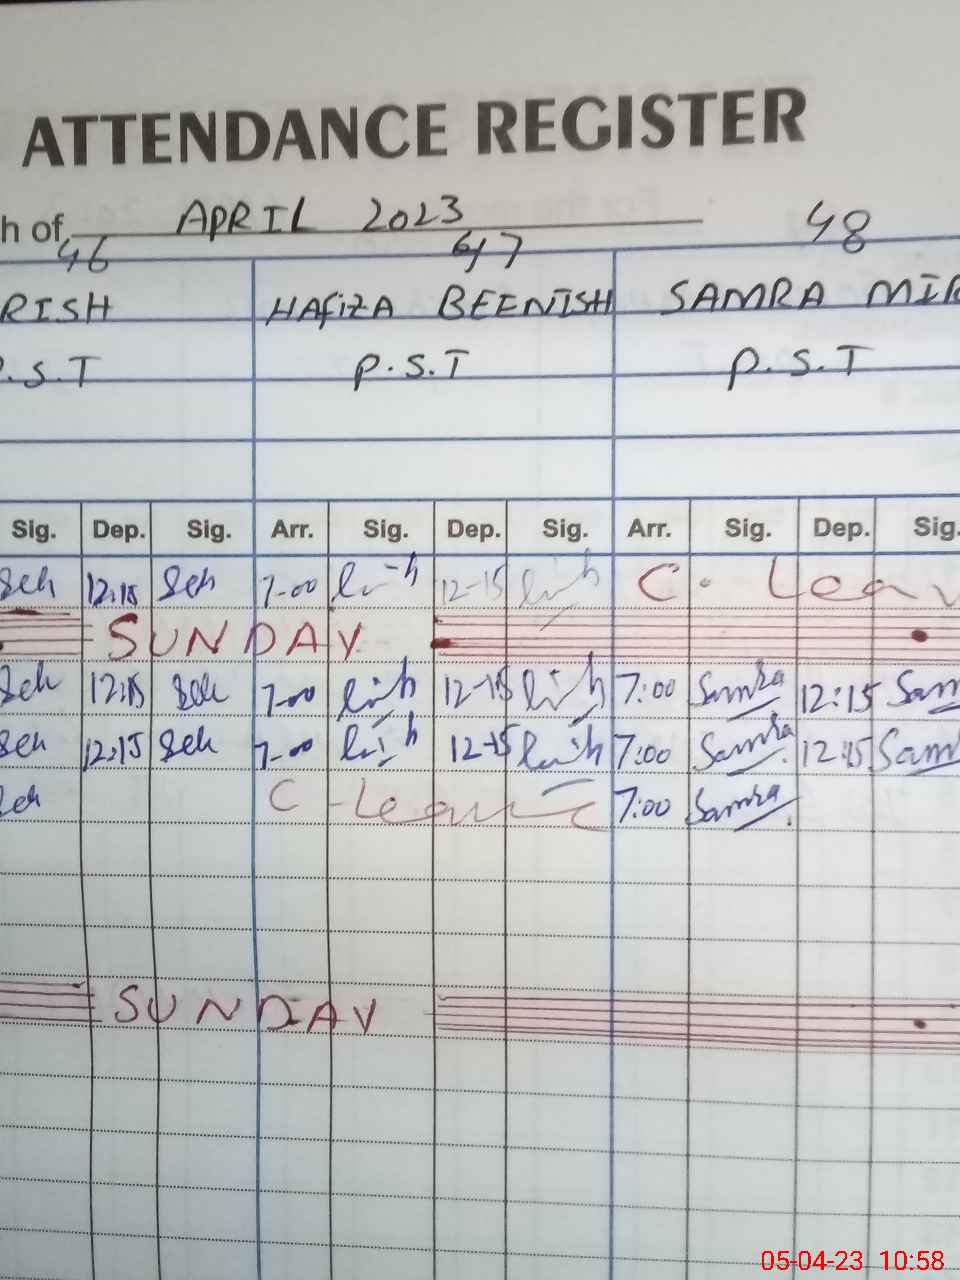 ATTENDANCE REGISTER
h of APRIL 2023
46 47 48
RISH HAFIZA BEENISH SAMRA MIR
P.S.T P.S.T P.S.T
Sig. Dep. Sig. Arr. Sig. Dep. Sig. Arr. Sig. Dep. Sig.
12:15 7-00 12-15 C. Leav
SUNDAY
12:15 7-00 12-15 7:00 Samra 12:15 Sam
12:15 7-00 12-15 7:00 Samra 12:15 Sam
C-Leave 7:00 Samra
SUNDAY
05-04-23 10:58